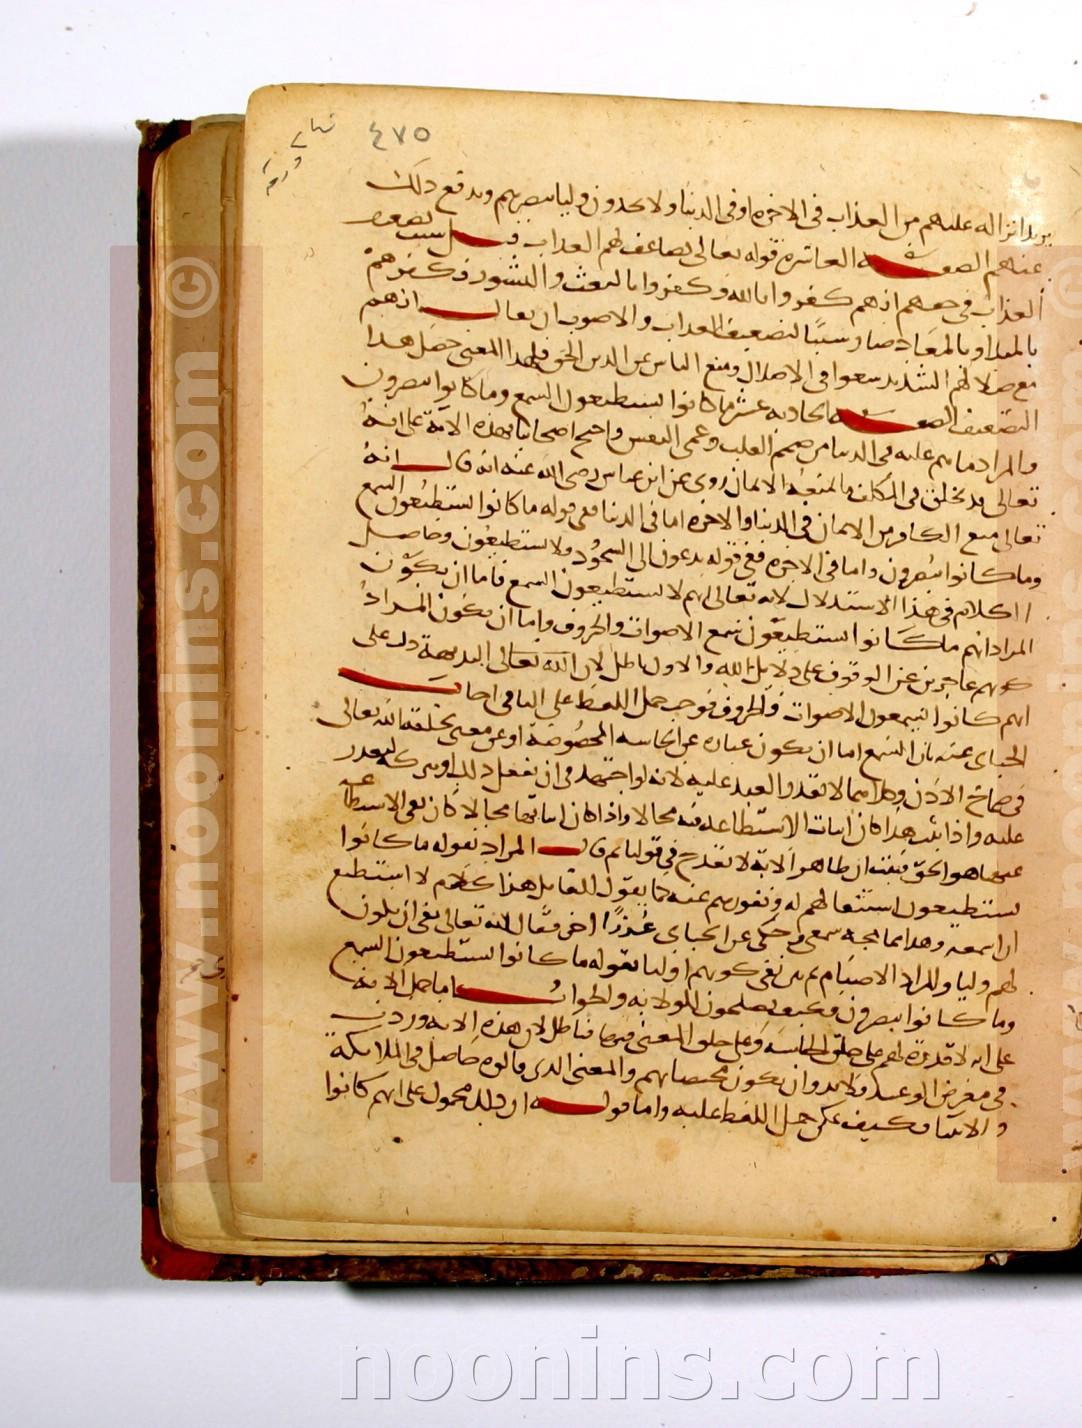 ٤٧٥
يريد انزاله عليهم من العذاب في الاخرة او في الدنيا ولا يجدون وليا ينصرهم ويدفع ذلك
عنهم الصفة العاشرة قوله تعالى يضاعف لهم العذاب قيل سبب تضعيف
العذاب في حقهم انهم كفروا بالله وكفروا بالبعث والنشور فكفرهم
بالمبدا وبالمعاد صار سببا لتضعيف العذاب والاصوب ان يقال انهم
مع ضلالهم الشديد سعوا في الاضلال ومنع الناس عن الدين الحق فلهذا المعنى حصل هذا
التضعيف الصفة الحادية عشر ما كانوا يستطيعون السمع وما كانوا يبصرون
والمراد ما هم عليه في الدنيا من صمم القلب وعمى النفس واحتج اصحابنا بهذه الاية على انه
تعالى قد يخلق في المكلف ما يمنعه الايمان روى عن ابن عباس رضى الله عنه انه قال انه
تعالى منع الكافر من الايمان في الدنيا والاخرة اما في الدنيا ففي قوله ما كانوا يستطيعون السمع
وما كانوا يبصرون واما في الاخرة ففي قوله يدعون الى السجود فلا يستطيعون وحاصل
الكلام في هذا الاستدلال لانه تعالى انهم لا يستطيعون السمع فاما ان يكون
المراد انهم ما كانوا يستطيعون سمع الاصوات والحروف واما ان يكون المراد
كونهم عاجزين عن الوقوف على دلائل الله والاول باطل لان البديهة دلت على
انهم كانوا يسمعون الاصوات والحروف فوجب حمل اللفظ على الثانى اجاب
الجباى عنه بان السمع اما ان يكون عبارة عن الحاسة المخصوصة او عن معنى يخلقه الله تعالى
في صماخ الاذن وكلاهما لا يقدر العبد عليه لانه لو اجتهد في ان يفعل ذلك او يتركه لتعذر
عليه واذا ثبت هذا كان اثبات الاستطاعة فيه محالا واذا كان اثباتها محالا كان نفى الاستطاعة
عنها هو الحق فثبت ان ظاهر الاية لا يقدح في قولنا ثم قال المراد بقوله ما كانوا
يستطيعون استثقالهم له ونفورهم عنه كما يقول القايل هذا كلام لا استطيع
ان اسمعه وهذا مما يمجه سمعي وحكى عن الجباى عذرا اخر فقال انه تعالى نفى ان يكون
لهم وليا والمراد الاصنام ثم بين نفى كونهم اوليا بقوله ما كانوا يستطيعون السمع
وما كانوا يبصرون فكيف يصلحون للولاية والجواب اما حمل الاية
على انه لا قدرة لهم على خلق الحاسة وعلى خلق المعنى فيها فباطل لان هذه الاية وردت
في معرض الوعيد فلا بد وان يكون مختصا بهم والمعنى الذى قالوه حاصل في الملائكة
والانبيا فكيف يمكن حمل اللفظ عليه واما قوله ان ذلك محمول على انهم كانوا
www.noonins.com ©
www.noonins.com ©
noonins.com